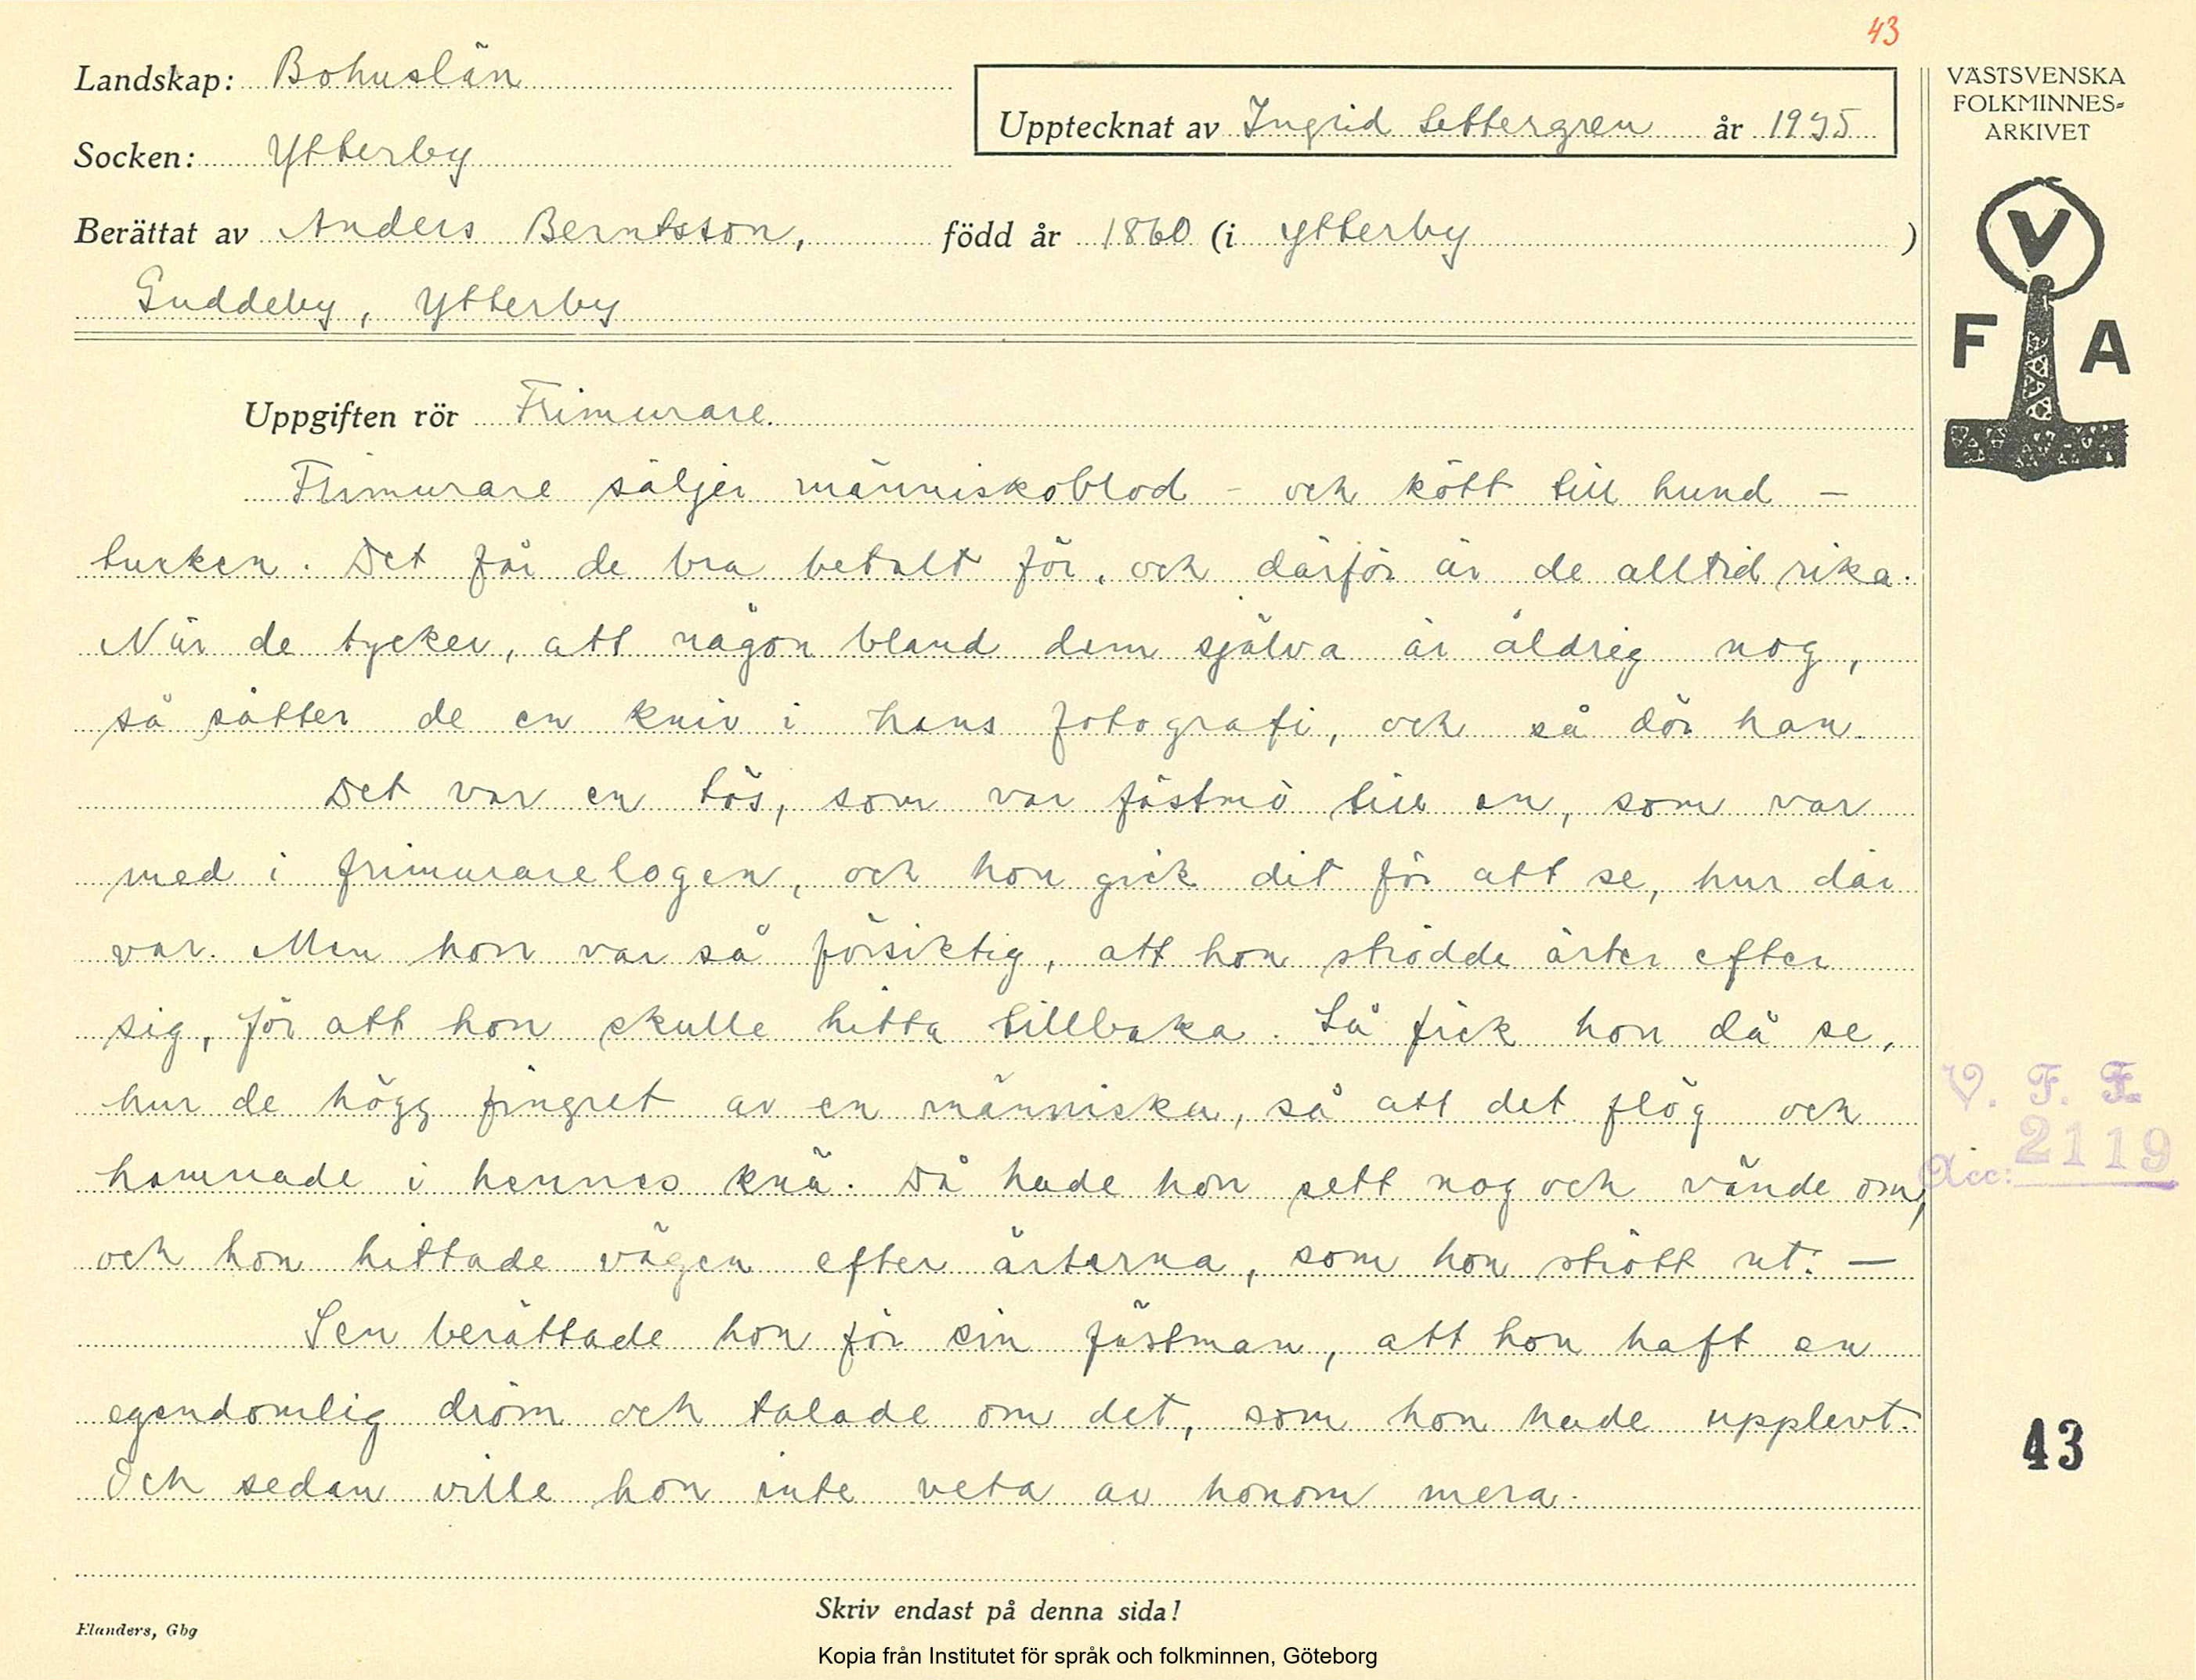 43
Landskap: Bohuslän
Socken: Ytterby
Upptecknat av Ingrid Settergren år 1935
Berättat av Anders Berntsson, född år 1860 (i Ytterby )
Guddeby, Ytterby
Uppgiften rör Frimurare.
Frimurare säljer människoblod - och kött till hund -
turken. Det får de bra betalt för, och därför är de alltid rika.
När de tycker, att någon bland dem själva är åldrig nog,
så sätter de en kniv i hans fotografi, och så dör han.
Det var en tös, som var fästmö till en, som var
med i frimurarelogen, och hon gick dit för att se, hur där
var. Men hon var så försiktig, att hon strödde ärter efter
sig, för att hon skulle hitta tillbaka. Så fick hon då se,
hur de högg fingret av en människa, så att det flög och
hamnade i hennes knä. Då hade hon sett nog och vände om,
och hon hittade vägen efter ärterna, som hon strött ut. —
Sen berättade hon för sin fästman, att hon haft en
egendomlig dröm och talade om det, som hon hade upplevt.
Och sedan ville hon inte veta av honom mera.
Skriv endast på denna sida!
Elanders, Gbg
Kopia från Institutet för språk och folkminnen, Göteborg
VÄSTSVENSKA
FOLKMINNES-
ARKIVET
V
F A
V. F. F.
Acc: 2119
43